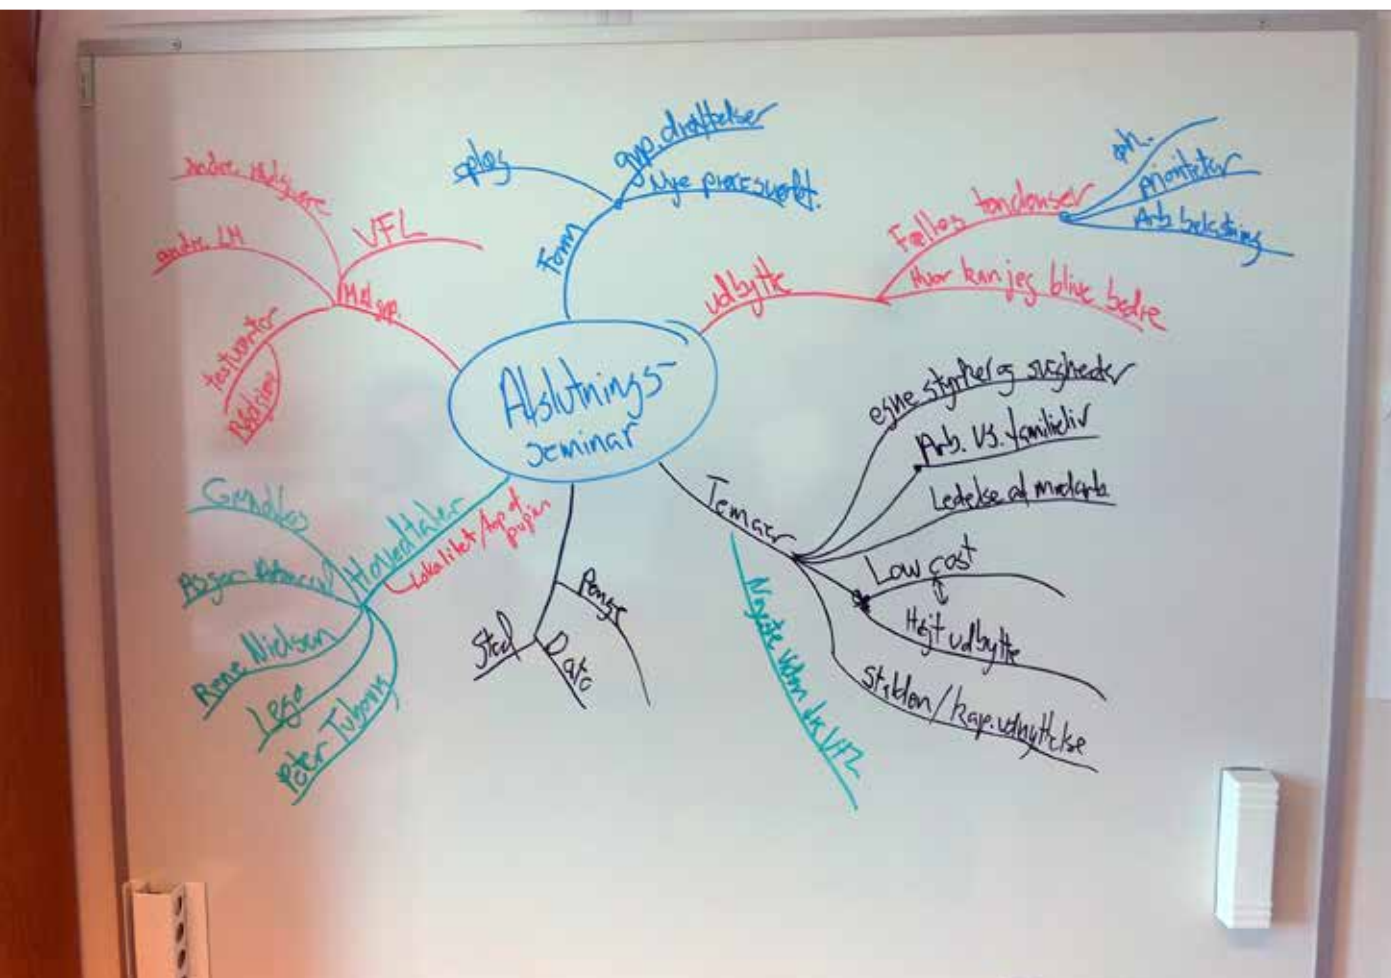 Afslutnings-
seminar
Form
oplæg
grp. drøftelser
Nye procesværkt.
udbytte
Fælles tendenser
øk.
prioriteter
Arb. belastning
Hvor kan jeg blive bedre
Temaer
egne styrker og svagheder
Arb. vs. familieliv
Ledelse af medarb.
Low cost
Højt udbytte
Stalden/kap.udnyttelse
Nyeste viden fra VFL
Penge
Dato
Sted
Hovedtaler
Lokalitet/
Rene Nielsen
Lego
Peter
Mål grp.
VFL
andre
andre LM
testværter